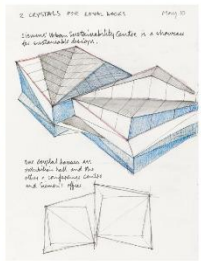 2 CRYSTALS FOR ROYAL DOCKS May 10
Siemens Urban Sustainability Centre is a showcase
for sustainable designs.
One crystal houses an
exhibition hall and the
other a conference centre
and offices